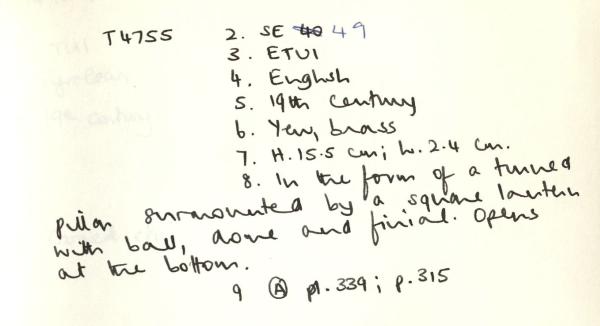 T4755 2. SE 40 49
3. ETUI
4. English
5. 19th century
6. Yew, brass
7. H. 15.5 cm; W. 2.4 cm.
8. In the form of a turned
pillar surmounted by a square lantern
with ball, dome and finial. Opens
at the bottom.
9 Ⓐ pl. 339; p. 315